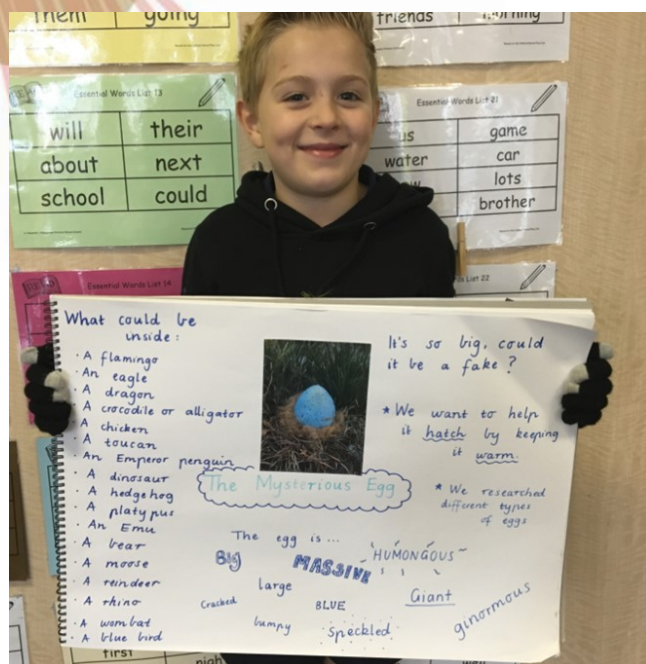 them going
friends morning
Essential Words List 13
will their
about next
school could
Essential Words List 21
us game
water car
lots
brother
Essential Words List 14
List 22
What could be
inside:
· A flamingo
· An eagle
· A dragon
· A crocodile or alligator
· A chicken
· A toucan
· An Emperor penguin
· A dinosaur
· A hedgehog
· A platypus
· An Emu
· A bear
· A moose
· A reindeer
· A rhino
· A wombat
· A blue bird
The Mysterious Egg
It's so big, could
it be a fake?
* We want to help
it hatch by keeping
it warm.
* We researched
different types
of eggs
The egg is...
Big MASSIVE HUMONGOUS
large
Cracked BLUE Giant
bumpy speckled ginormous
first